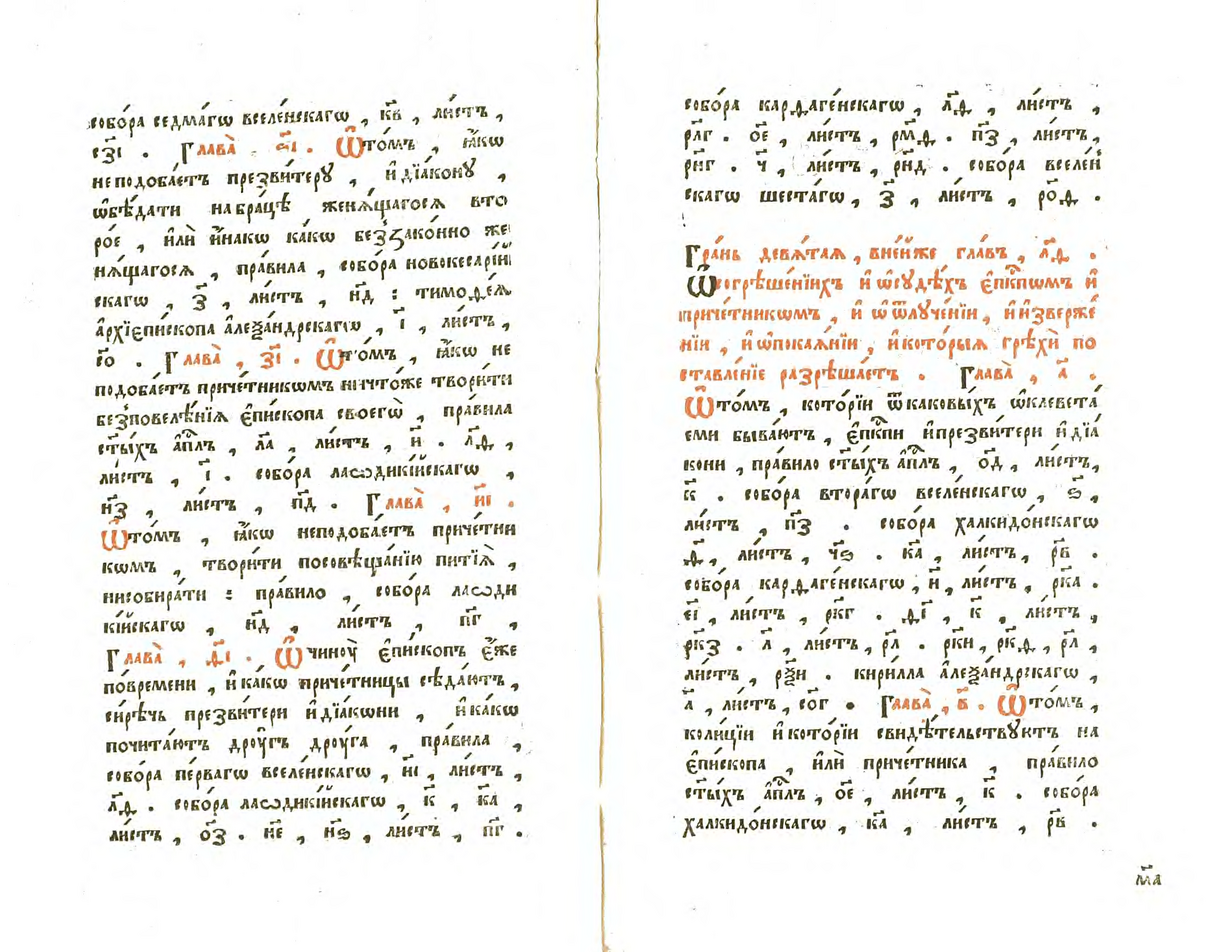 собо́ра седма́гѡ вселе́нскагѡ , к҃в , ли́стъ ,
с҃зі . Глава̀ . ѕ҃і . Ѿто́мъ , ꙗ҆́кѡ
неподоба́етъ презви́теру , и҆ дїа́кону ,
ѡ҆бѣ́дати набра́цѣ женѧ́щагосѧ вто
ро́е , и҆лѝ и҆́накѡ ка́кѡ беззако́нно же
нѧ́щагосѧ , пра́вила , собо́ра новокесарі́и
скагѡ , з҃ , ли́стъ , н҃д : тимоѳе́ѧ
а҆рхїєпи́скопа а҆леѯа́ндрскагѡ , і҃ , ли́стъ ,
с҃о . Глава̀ , з҃і . Ѿто́мъ , ꙗ҆́кѡ не
подоба́етъ приче́тникѡмъ ничто́же твори́ти
безповелѣ́нїѧ є҆пи́скопа своегѡ̀ , пра́вила
ст҃ы́хъ а҆п҃лъ , л҃а , ли́стъ , и҃ . л҃ѳ ,
ли́стъ , і҃ . собо́ра лаѡдикі́йскагѡ ,
н҃з , ли́стъ , п҃д . Глава̀ , и҃і .
Ѿто́мъ , ꙗ҆́кѡ неподоба́етъ приче́тни
кѡмъ , твори́ти посовѣща́нїю питїѧ̀ ,
нисобира́ти : пра́вило , собо́ра лаѡди
кі́йскагѡ , н҃д , ли́стъ , п҃г ,
Глава̀ , ѳ҃і . Ѿчиноу̀ є҆пи́скопъ є҆́же
по́времени , и҆ ка́кѡ приче́тницы сѣда́ютъ ,
си́рѣчь презви́тери и҆ дїа́кѡни , и҆ ка́кѡ
почита́ютъ дроу́гъ дроу́га , пра́вила ,
собо́ра пе́рвагѡ вселе́нскагѡ , и҃і , ли́стъ ,
л҃ѳ . собо́ра лаѡдикі́йскагѡ , к҃ , к҃а ,
ли́стъ , о҃з . н҃е , н҃ѕ , ли́стъ , п҃г .
собо́ра карѳаге́нскагѡ , л҃ѳ , ли́стъ ,
р҃лг . о҃е , ли́стъ , р҃мѳ . п҃з , ли́стъ ,
р҃нг . ч҃ , ли́стъ , р҃нд . собо́ра вселе́н
скагѡ шеста́гѡ , з҃ , ли́стъ , р҃оѳ .
Гра́нь девѧ́таѧ , вне́йже гла́въ , л҃ѳ .
Ѡ҆согрѣше́нїихъ и҆ ѡ҆сꙋдѣ́хъ є҆п҃кпѡмъ и҆
приче́тникѡмъ , и҆ ѡ҆ ѿлуче́нїи , и҆ и҆зверже́
нїи , и҆ ѡ҆покаѧ́нїи , и҆ кото́рыѧ грѣхѝ по
ставле́нїе разрѣша́етъ . Глава̀ , а҃ .
Ѿто́мъ , кото́рїи ѿ каковы́хъ ѡ҆клевета́
еми быва́ютъ , є҆п҃кпи и҆ презви́тери и҆ дїа́
кони , пра́вило ст҃ы́хъ а҆п҃лъ , о҃д , ли́стъ ,
к҃ . собо́ра втора́гѡ вселе́нскагѡ , ѕ҃ ,
ли́стъ , п҃з . собо́ра халкидо́нскагѡ
ѳ҃ , ли́стъ , ч҃ѕ . к҃а , ли́стъ , р҃в .
собо́ра карѳаге́нскагѡ , и҃ , ли́стъ , р҃ка .
є҃і , ли́стъ , р҃кг . ѳ҃і , к҃ , ли́стъ ,
р҃кз . л҃ , ли́стъ , р҃л . р҃ки , р҃кѳ , р҃л ,
ли́стъ , р҃ѯи . кири́лла а҆леѯа́ндрскагѡ ,
а҃ , ли́стъ , с҃ог . Глава̀ , в҃ . Ѿто́мъ ,
коли́цїи и҆ кото́рїи свидѣ́тельствꙋютъ на
є҆пи́скопа , и҆лѝ приче́тника , пра́вило
ст҃ы́хъ а҆п҃лъ , о҃е , ли́стъ , к҃ . собо́ра
халкидо́нскагѡ , к҃а , ли́стъ , р҃в .
м҃а